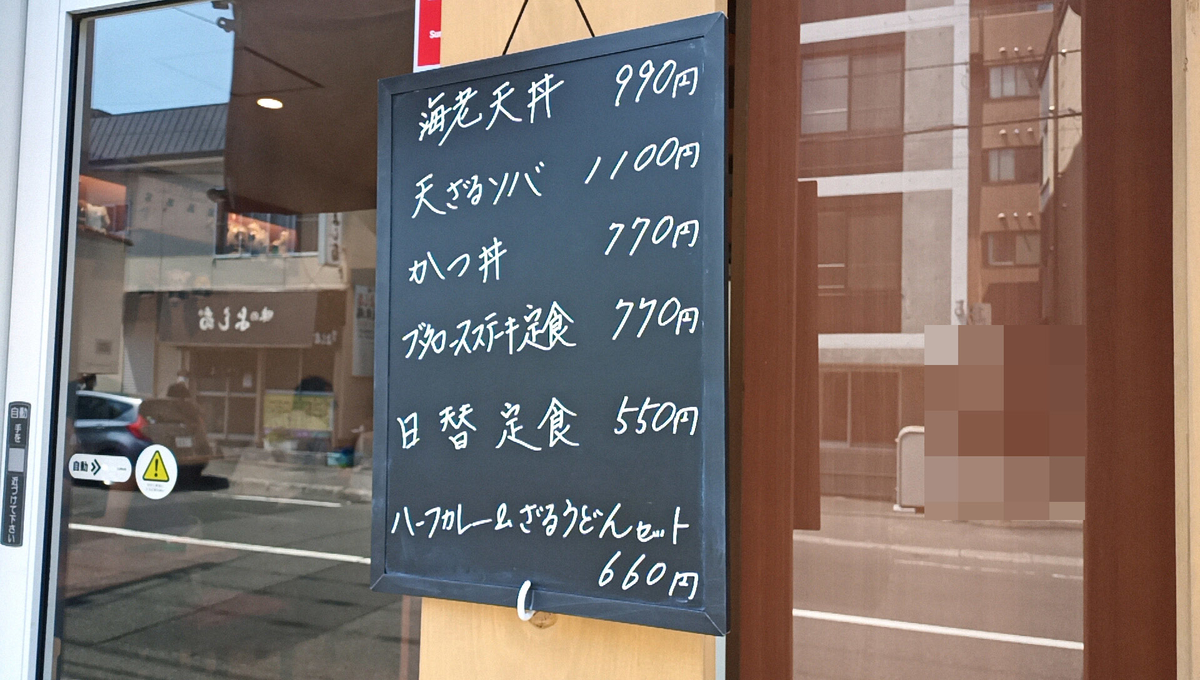 海老天丼 990円
天ざるソバ 1100円
かつ丼 770円
ブタロースステーキ定食 770円
日替定食 550円
ハーフカレー&ざるうどんセット
660円
自動
手を
近づけて下さい
自動